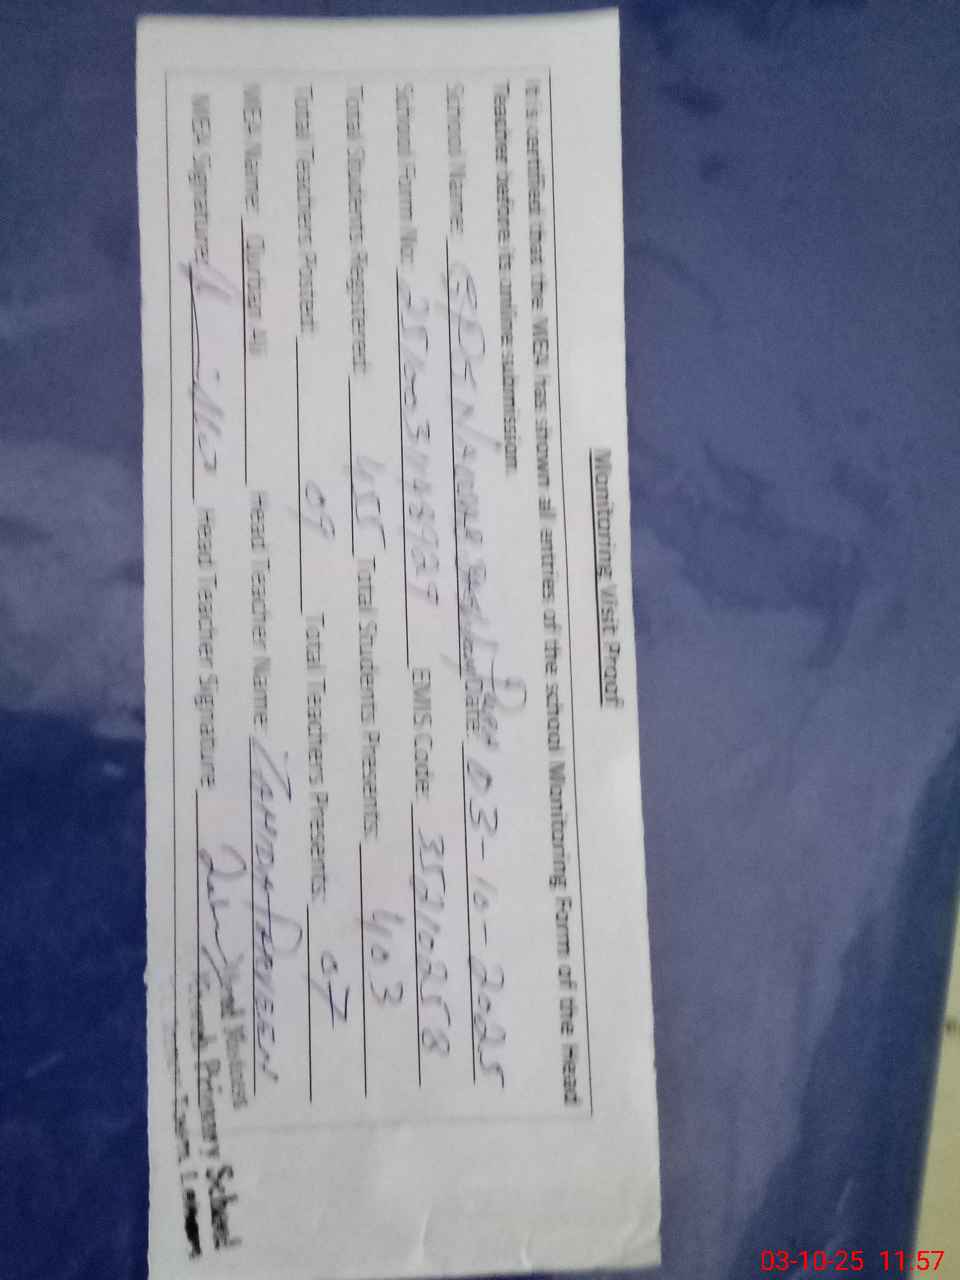 Monitoring Visit Proof
It is certified that the MEA has shown all entries of the school Monitoring Form of the Head
Teacher before its online submission.
School Name: Town Date: 03-10-2025
School Form No: EMIS Code: 35210258
Total Students Registered: 455 Total Students Presents: 403
Total Teachers Posted: 09 Total Teachers Presents: 07
MEA Name: Qurban Ali Head Teacher Name: ZAHIDA PARVEEN
MEA Signature: Head Teacher Signature
Primary School
03-10-25 11:57